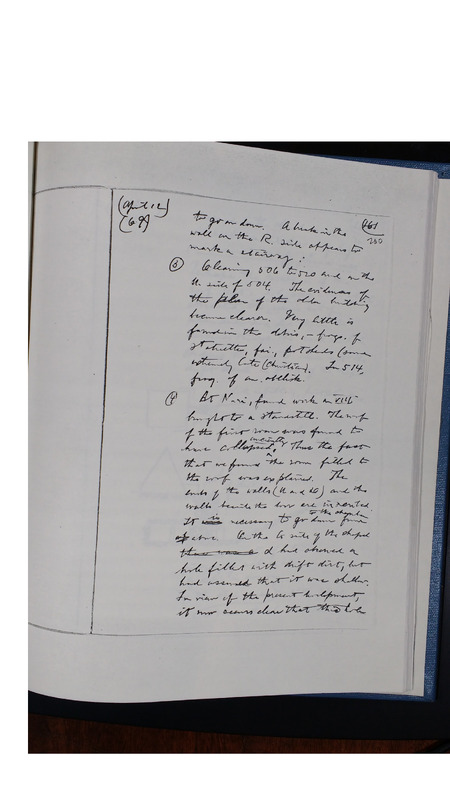 (April 12)
(69)
261
250
to go on down. A break in the
wall on the R. side appears to
mark a stairway.
Clearing 506 to 520 and on the
side of 504. The evidences of
the plan of the older building
become clearer. Very little is
found in the debris, – frags. of
statuettes, fai., potsherds (some
extremely late (Christian). In 514,
frag. of an obelisk.
At Nuri, found work on XIII
brought to a standstill. The roof
of the first room was found to
have collapsed recently. Thus the fact
that we found the room filled to
the roof was explained. The
ends of the walls and the
walls beside the door are
It is necessary to go down from
above. On the side of the chapel
there was a I had showed a
hole filled with drift dirt, but
had assumed that it was older.
In view of the present development,
it now seems clear that this hole